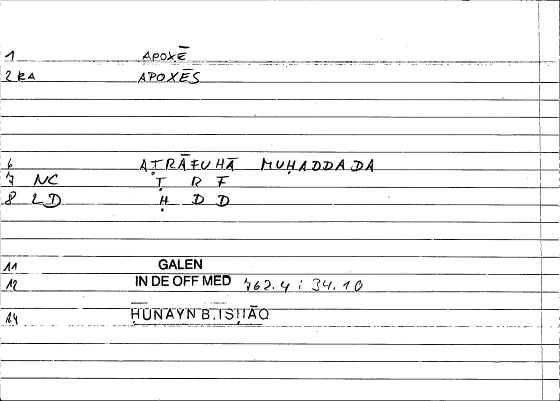 1 APOXĒ
2 RA APOXĒS
6 AṬRĀFUHĀ MUḤADDADA
7 NC Ṭ R F
8 LD Ḥ D D
11 GALEN
12 IN DE OFF MED 762.4 : 34.10
14 ḤUNAYN B. ISḤĀQ